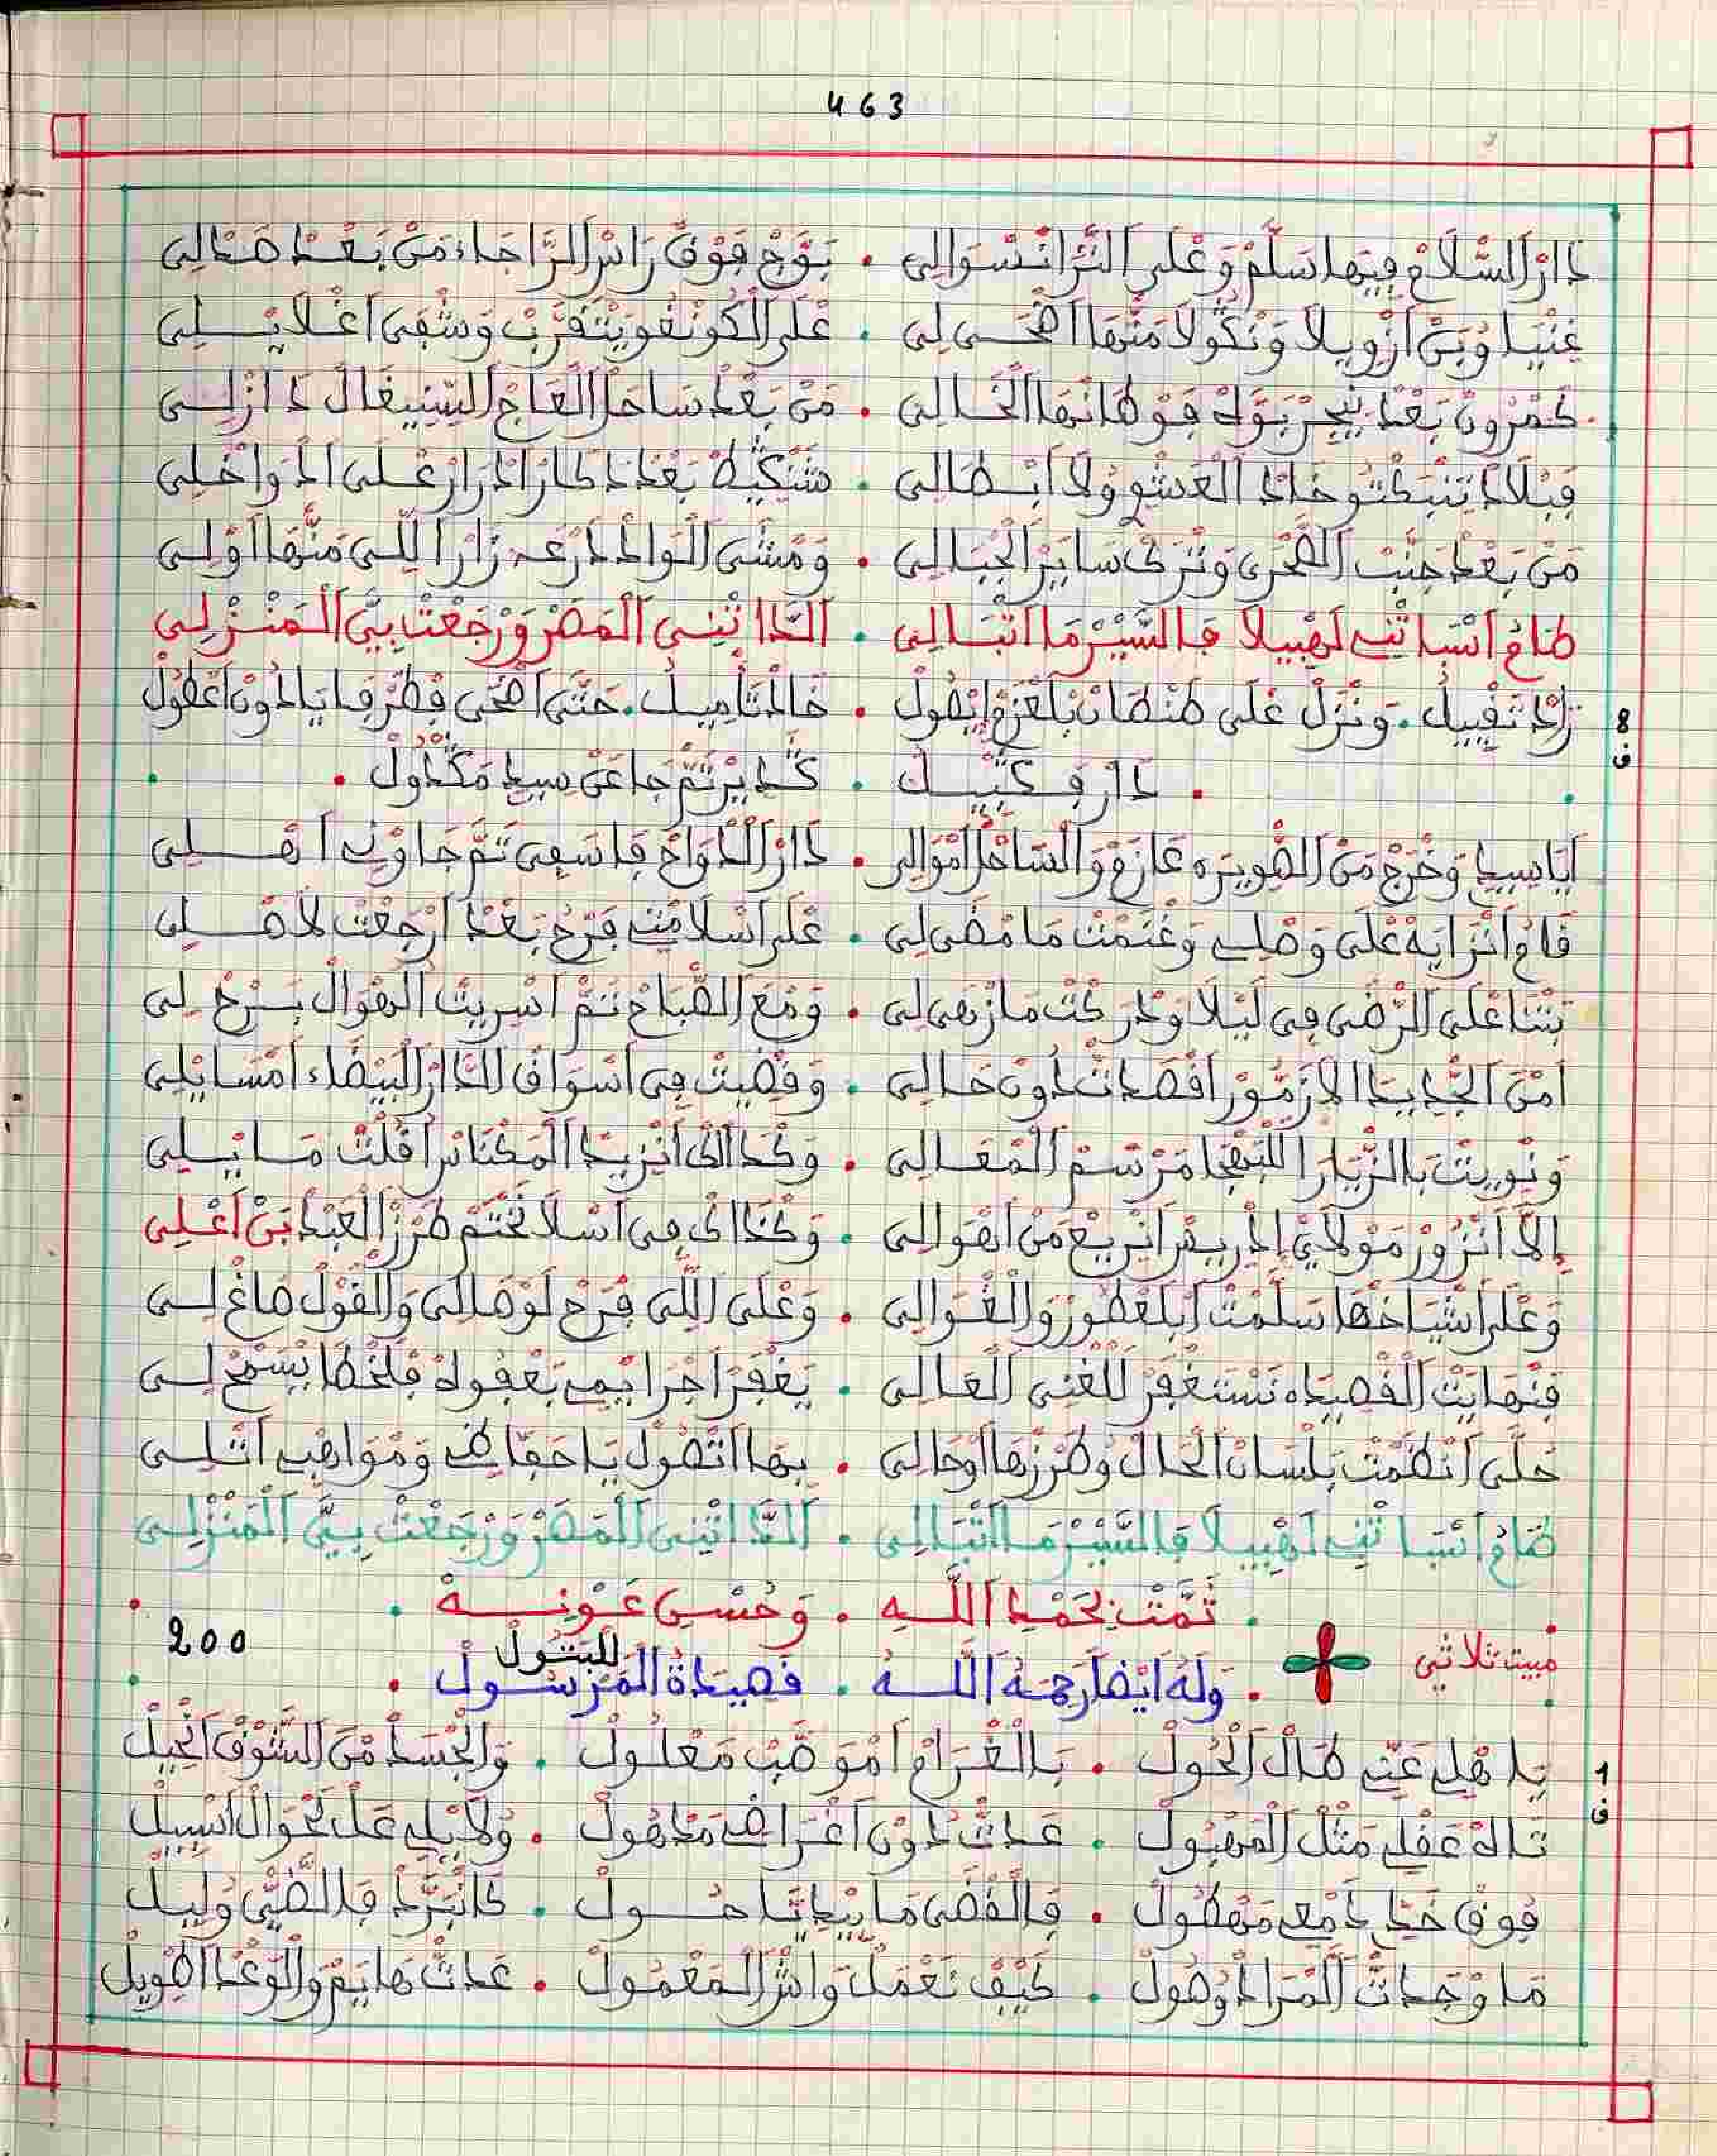 463
دَارْ السّْلَامْ فِيهَا سَلَّمْ وَعْلَى التّْرَا نْسْوَالِي . بَوَّجْ فَوْقْ رَاسْ الرَّاجَاء مَنْ بَعْدْ هَـٰـالِي
غِنْيَا وُبَنْ أَزْوِيلَا وَنْكُولَا مَنْهَا اضْحَـى لِي . عْلَى الْكُونْغُو يَتْقَرَّبْ وَشْفَى اغْلَايْـلِي
كَمْرُونْ بَعْدْ نِيجِرْ الْخَـالِي . مَنْ بَعْدْ سَاحَلْ الْعَاجْ السِّينِيغَالْ دَازْلِـي
فِبْلَادْ الْعَشُو وْلَا ابْـطَالِي . بَعْدْ ادْرَارْ عْلَى ادْوَاخْلِي
مَنْ بَعْدْ جِيتْ الصَّحْرَى وَنْتَرْكْ سَايَرْ الْجْبَالِي . وَمْشَى الْوَادْ دَرْعَه زَارْ اللِّي مَنْهَا اوْلِـي
طَاعْ لَهْبِيلَا فَالسِّيرْ مَا اتْبَـالِي . الدَّا تْنِـي الْمَصْرْ وَرْجَعْتْ بِيَّ الْمَنْـزْلِي
8
ف
زَادْ تَقْبِيلْ . وَنْزَلْ عْلَى طَنْطَانْ بَلْعَزْمْ ايْصُولْ . خَادْ تَامِيلْ . حَتَّى اضْحَى فِطَرْفَايَا دُونْ اعْطُولْ
. دَارْ . جَا عَنْ سِيدِ مَكْدُولْ .
ايَا سِيدِي وَخْرَجْ مَنْ الصّْوِيرَه عَازَمْ وَالسَّاحْلْ امْوَالِي . دَارْ الدّْوَاحْ فَاسَفِي تَمَّ جَاوْنِي اهْـلِي
قَامْ انْزَايَهْ عْلَى وَصْلِي وَغْنَمْتْ مَا مْضَى لِي . عْلَى اسْلَامْتِي فَرْحْ بَعْدْ ارْجَعْتْ لَاهْـلِي
بَتْنَا عْلَى الرّْضَى فِي لَيْلَا وَدْرَكْتْ مَا زْهَى لِي . وَمْعَ الصّْبَاحْ تَمَّ اسْرِيتْ الْهْوَالْ يَسْرَحْ لِي
امْنْ الجّْدِيدَا الازَمُّورْ اقْصَدْتْ دُونْ حَـالِي . وَقْضِيتْ فِي اسْوَاقْ الدَّارْ الْبَيْضَاء امْسَايْلِي
وَنْوِيتْ بَالزّْيَارَا اللْبَهْجَا مَرْسَمْ الْمْعَـالِي . وَكْدَالَكْ انْزِيدْ الْمَكْنَاسْ اقْلَتْ مَـا يْـلِي
إِلَّا انْزُورْ مَوْلَايْ إِدْرِيسْ انْرِيعْ مَنْ اهْوَالِي . وَكْدَالَكْ فِي اسْلَا نَخْتَمْ طَرْزْ الْعَبْدْ بَنْ اعْلِي
وَعْلَى اشْيَاخْهَا سَلَّمْتْ ابْلَعْطُورْ وَالْغْـوَالِي . وَعْلَى اللِّي فْرَحْ لَوْصَالِي وَالْقُولْ صَاغْ لِـي
فِنْهَايَتْ الْقْصِيدَه نَسْتَغْفَرْ الْغْنِي الْعَـالِي . يَغْفَرْ اجْرَايْمِي بَعْفُوهْ فَلْخْطَا يَسْمَحْ لِـي
حُلَّى انْظَمْتْ بَلْسَانْ الْحَالْ وْطَرْزْهَا اوْحَالِي . بِهَا اتْصُولْ يَا حَفَّاظِي وَمْوَاهْبِي اتْلِـي
طَاعْ لَهْبِيلَا فَالسِّيرْ مَا اتْبَـالِي . الدَّا تْنِي الْمَصْرْ وَرْجَعْتْ بِيَّ الْمَنْزْلِـي
. تَمَّتْ بَحَمْدِ اللَّـهِ . وَحُسْنِ عَوْنِـهْ .
مبيت ثلاثي . وَلَهُ ايْضًا رَحِمَهُ اللَّـهُ . قَصِيدَةُ الْمَرْسُـولْ . للبَتُولْ 200
1
ف
يَا هْلِي عَنِّي طَالْ الْحُولْ . بَالْغْرَامْ امْوَصَّبْ مَعْلُولْ . وَالْجْسَدْ مْنْ الشُّوقْ انْحِيلْ
تَاهْ عَقْلِي مَثْلْ الْمَهْبُولْ . عَدْتْ دُونْ اغْرَاضِي مَدْهُولْ . وْلَا بْلِي عَلْ لَحْوَالْ اسْبِيلْ
فُوقْ خَدِّي دَمْعِي مَهْطُولْ . فَالْفْضَى مَا بِيدِي تَا حُـولْ . كَانْبَرَّدْ فَالضَّيّ وْلِيلْ
مَا وْجَدْتْ الْمْرَادْ وْصُولْ . كِيفْ نَعْمَلْ وَاشْ الْمَعْمُولْ . عَدْتْ هَايَمْ وَالْوَعْدْ اطْوِيلْ